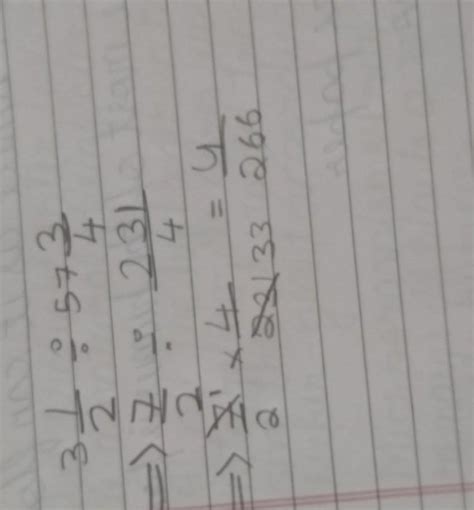 3 1/2 ÷ 57 3/4
=> 7/2 ÷ 231/4
=> 7 1/2 × 4/231 33 = 4/266